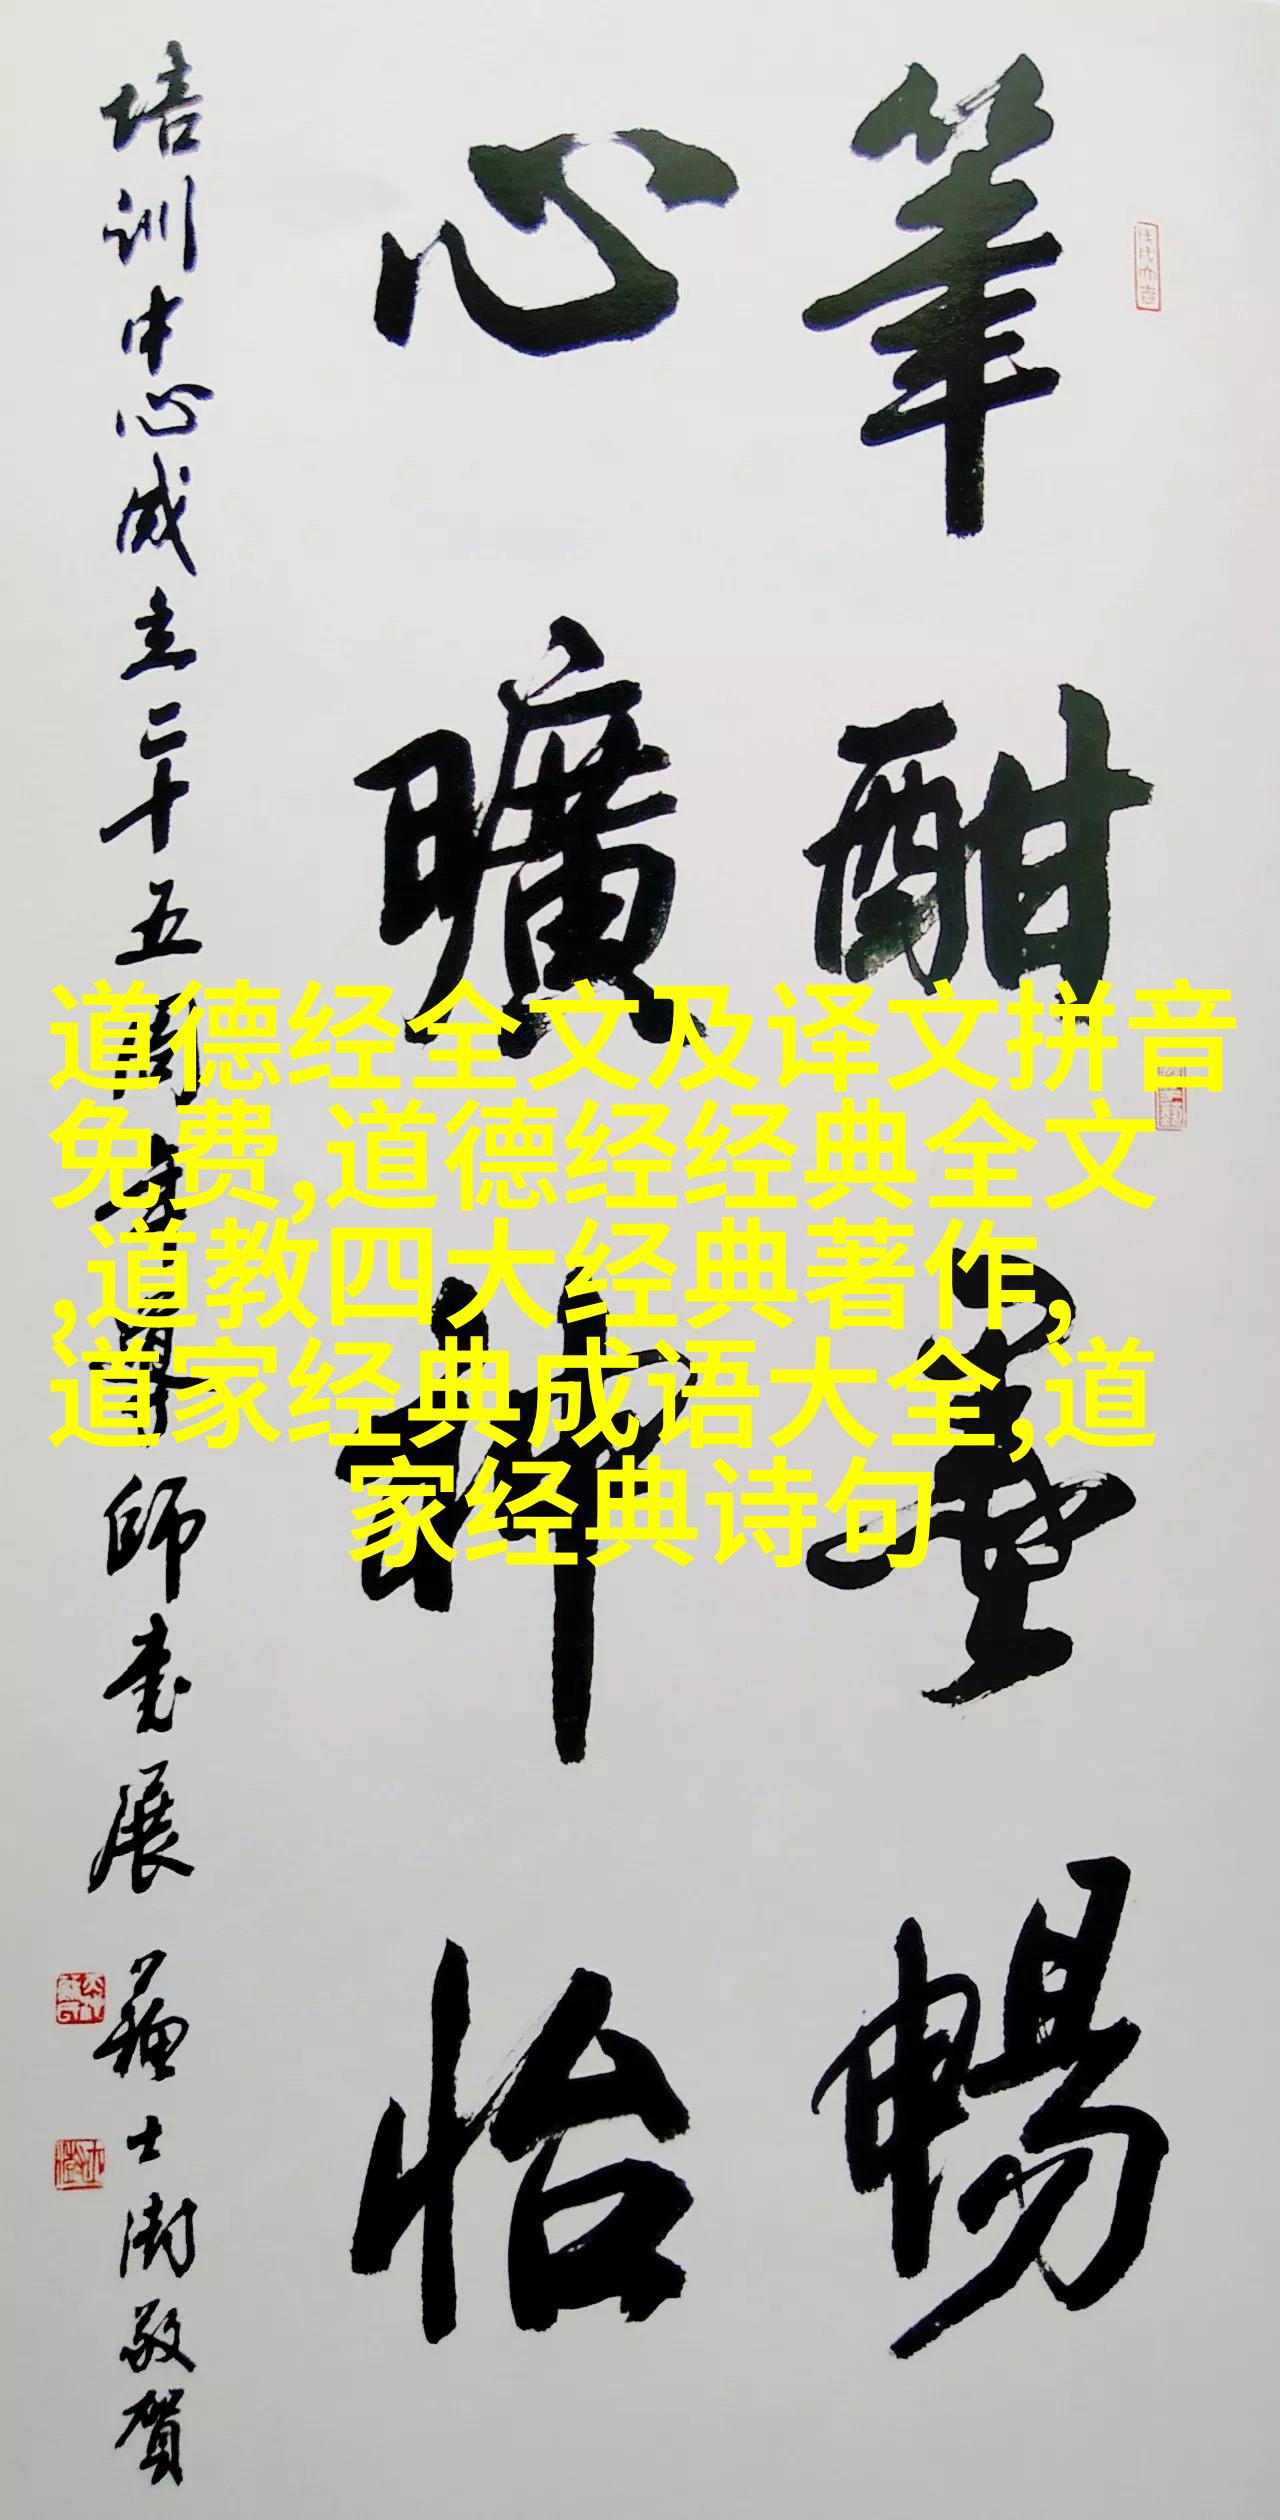 筆酣墨暢
心曠神怡
培训中心成立二十五周年晋京师书展 苏士澍敬贺
道德经全文及译文拼音
免费,道德经经典全文
,道教四大经典著作,
道家经典成语大全,道
家经典诗句